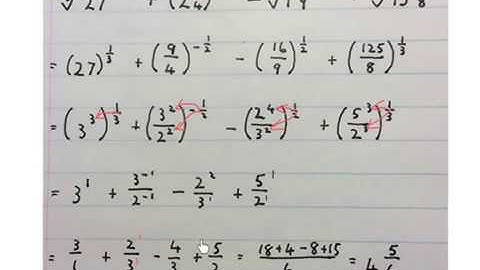 = (27)^{1/3} + (9/4)^{-1/2} - (16/9)^{1/2} + (125/8)^{1/3}
= (3^3)^{1/3} + (3^2/2^2)^{-1/2} - (2^4/3^2)^{1/2} + (5^3/2^3)^{1/3}
= 3^1 + 3^{-1}/2^{-1} - 2^2/3^1 + 5^1/2^1
= 3/1 + 2/3 - 4/3 + 5/2 = (18+4-8+15)/6 = 4 5/6